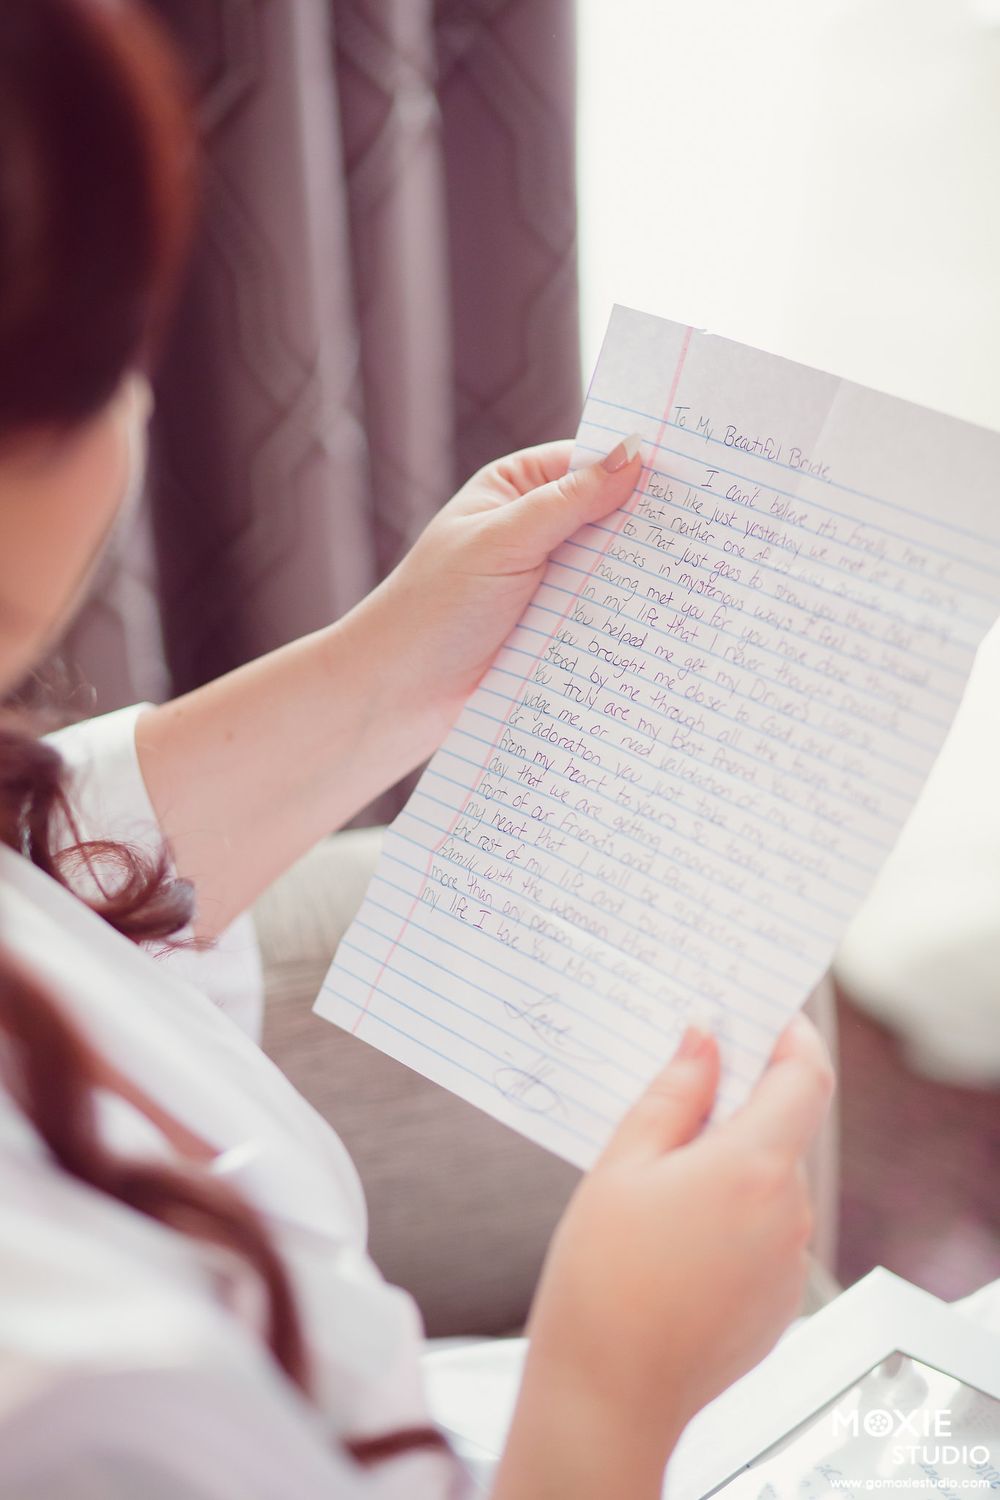 To My Beautiful Bride,
I can't believe it's finally here it
feels like just yesterday we met at a
that neither one of us was
to. That just goes to show you that God
works in mysterious ways I feel so blessed
having met you for you have done things
in my life that I never thought possible
You helped me get my Driver's
you brought me closer to God, and you
stood by me through all the
You truly are my best friend You never
judge me, or need validation of my love
or adoration you just take my word
from my heart to yours so today, the
day that we are getting married in
front of our friends and family I
my heart that I will be spending
the rest of my life and building a
family with the woman that I love
more than any person I've ever met
my life. I Love You Mrs
Love
MOXIE
STUDIO
www.gomoxiestudio.com